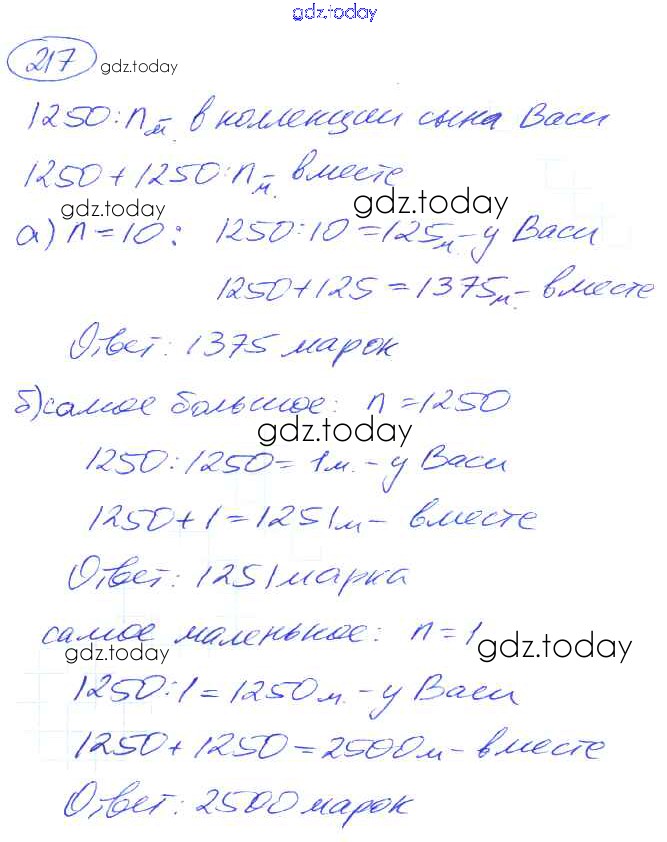 gdz.today
217 gdz.today
1250:n м. - в коллекции сына Васи
1250+1250:n м. - вместе
gdz.today gdz.today
а) n=10: 1250:10=125м.-у Васи
1250+125=1375м.-вместе
Ответ: 1375 марок
б) самое большое: n=1250
gdz.today
1250:1250=1м.-у Васи
1250+1=1251м-вместе
Ответ: 1251 марка
самое маленькое: n=1
gdz.today gdz.today
1250:1=1250м.-у Васи
1250+1250=2500м-вместе
Ответ: 2500 марок